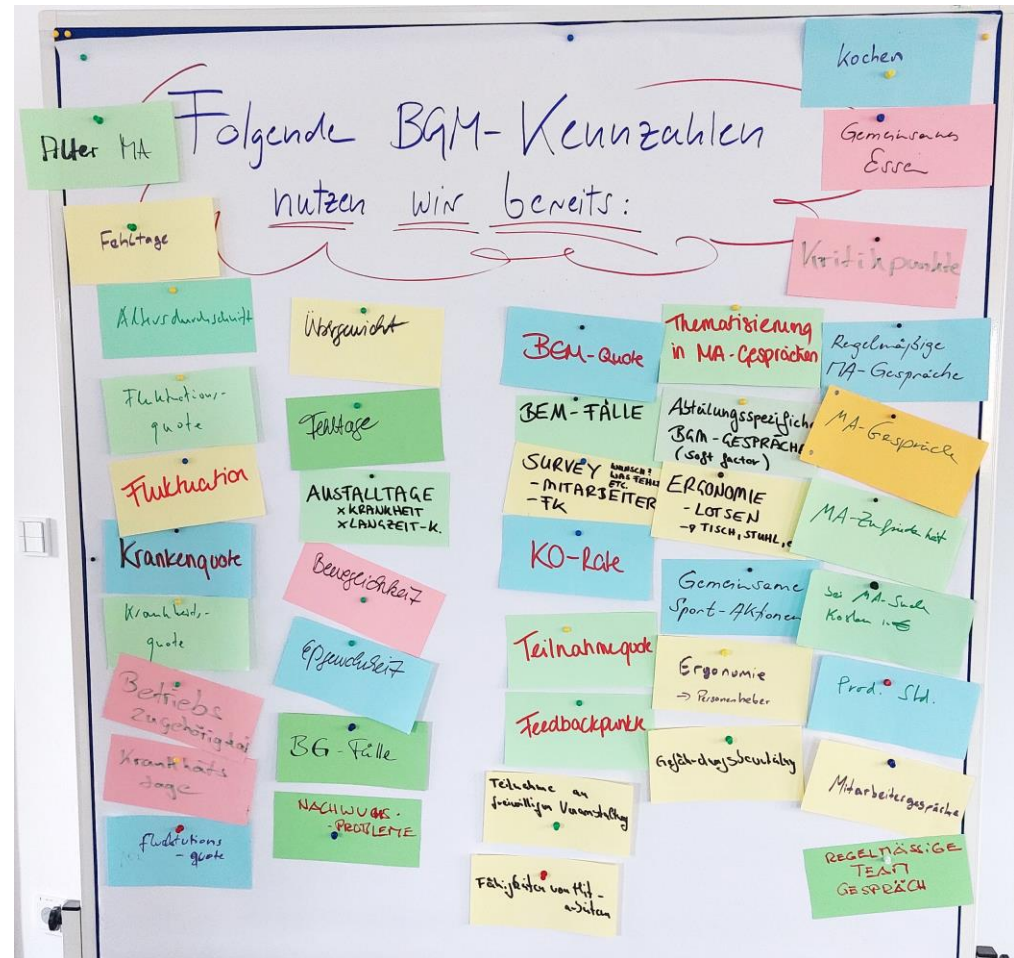 Folgende BGM-Kennzahlen
nutzen wir bereits:
Alter MA
Fehltage
Kochen
Gemeinsames
Essen
Kritikpunkte
Altersdurchschnitt
Fluktuations-
quote
Fluktuation
Krankenquote
Krankheits-
quote
Betriebs
zugehörigkeit
Krankheits
tage
Fluktuations
- quote
Übergewicht
Fehltage
AUSFALLTAGE
x KRANKHEIT
x LANGZEIT-K.
Beweglichkeit
BG-Fälle
NACHWUCHS-
-PROBLEME
BEM-Quote
BEM-FÄLLE
SURVEY WUNSCH?
WAS FEHLT
ETC.
- MITARBEITER
- FK
KO-Rate
Teilnahmequote
Feedbackpunkte
Teilnahme an
freiwilligen Veranstaltung
Fähigkeiten von Mit-
arbeitern
Thematisierung
in MA-Gesprächen
Abteilungsspezifische
BGM-GESPRÄCHE
(soft factor)
ERGONOMIE
- LOTSEN
-> TISCH, STUHL,
Gemeinsame
Sport-Aktionen
Ergonomie
-> Personenheber
Gefährdungsbeurteilung
Regelmäßige
MA-Gespräche
MA-Gespräch
MA-Zufriedenheit
bei MA-Suche
Kosten in €
Prod. Std.
Mitarbeitergespräche
REGELMÄSSIGE
TEAM
GESPRÄCH